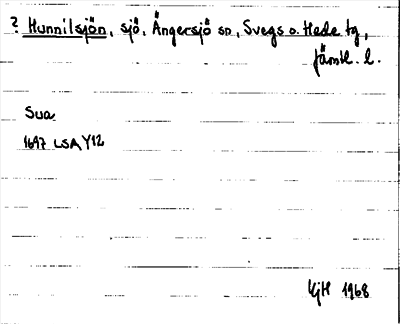 ? Hunnilsjön, sjö, Ängersjö sn, Svegs o. Hede tg,
Jämtl. l.
Sua
1697 LSA Y12
GjH 1968